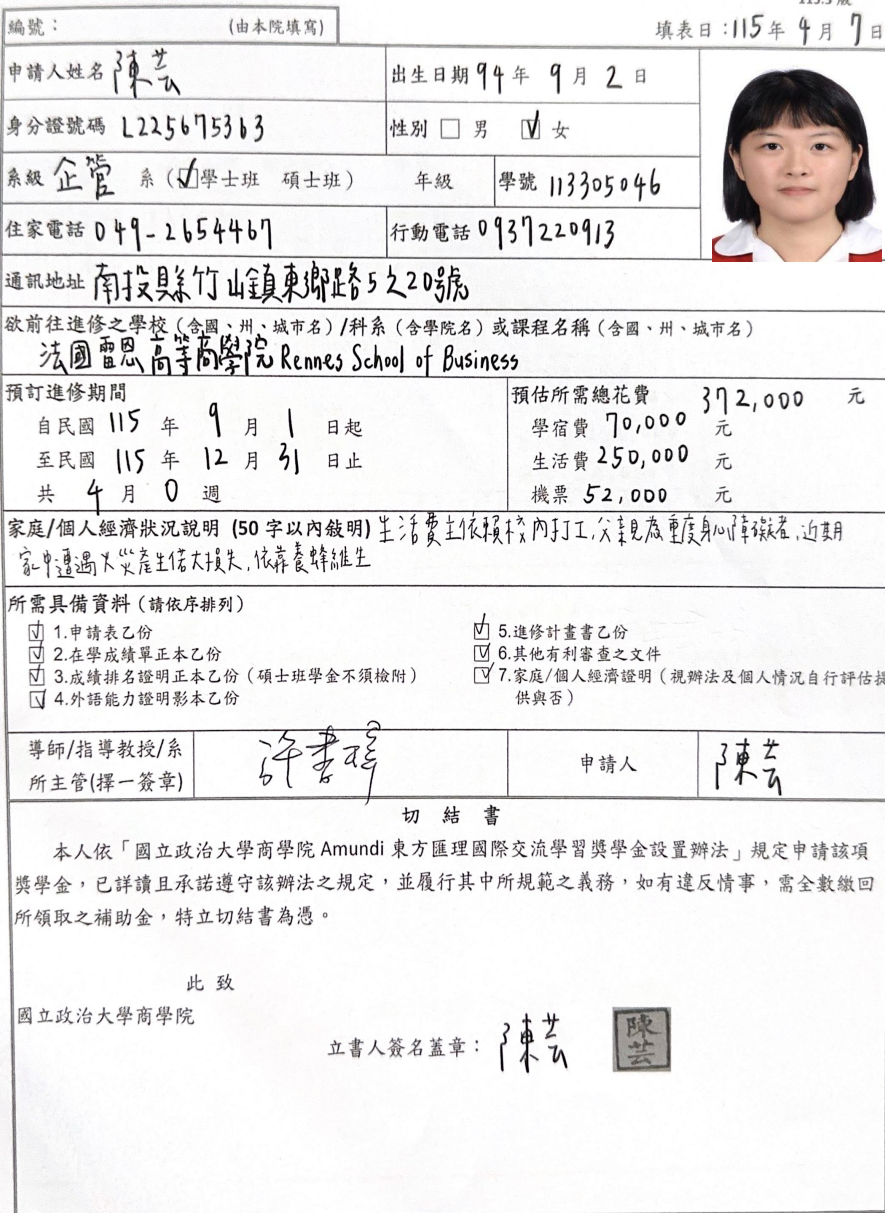 編號： (由本院填寫)
填表日：115年4月7日
申請人姓名 陳芸
出生日期 94 年 9 月 2 日
身分證號碼 L225675363
性別 □ 男 ☑ 女
系級 企管 系 (☑學士班 碩士班) 年級
學號 113305046
住家電話 049-2654467
行動電話 0937220913
通訊地址 南投縣竹山鎮東鄉路5之20號
欲前往進修之學校（含國、州、城市名）/科系（含學院名）或課程名稱（含國、州、城市名）
法國雷恩高等商學院 Rennes School of Business
預訂進修期間
自民國 115 年 9 月 1 日起
至民國 115 年 12 月 31 日止
共 4 月 0 週
預估所需總花費 372,000 元
學宿費 70,000 元
生活費 250,000 元
機票 52,000 元
家庭/個人經濟狀況說明 (50 字以內敘明) 生活費主依賴校內打工,父親為重度身心障礙者,近期
家中遭遇火災產生偌大損失,依靠養蜂維生
所需具備資料（請依序排列）
☑ 1.申請表乙份
☑ 2.在學成績單正本乙份
☑ 3.成績排名證明正本乙份（碩士班學金不須檢附）
☑ 4.外語能力證明影本乙份
☑ 5.進修計畫書乙份
☑ 6.其他有利審查之文件
☑ 7.家庭/個人經濟證明（視辦法及個人情況自行評估提
供與否）
導師/指導教授/系
所主管(擇一簽章)
申請人 陳芸
切 結 書
本人依「國立政治大學商學院 Amundi 東方匯理國際交流學習獎學金設置辦法」規定申請該項
獎學金，已詳讀且承諾遵守該辦法之規定，並履行其中所規範之義務，如有違反情事，需全數繳回
所領取之補助金，特立切結書為憑。
此 致
國立政治大學商學院
立書人簽名蓋章： 陳芸
陳芸